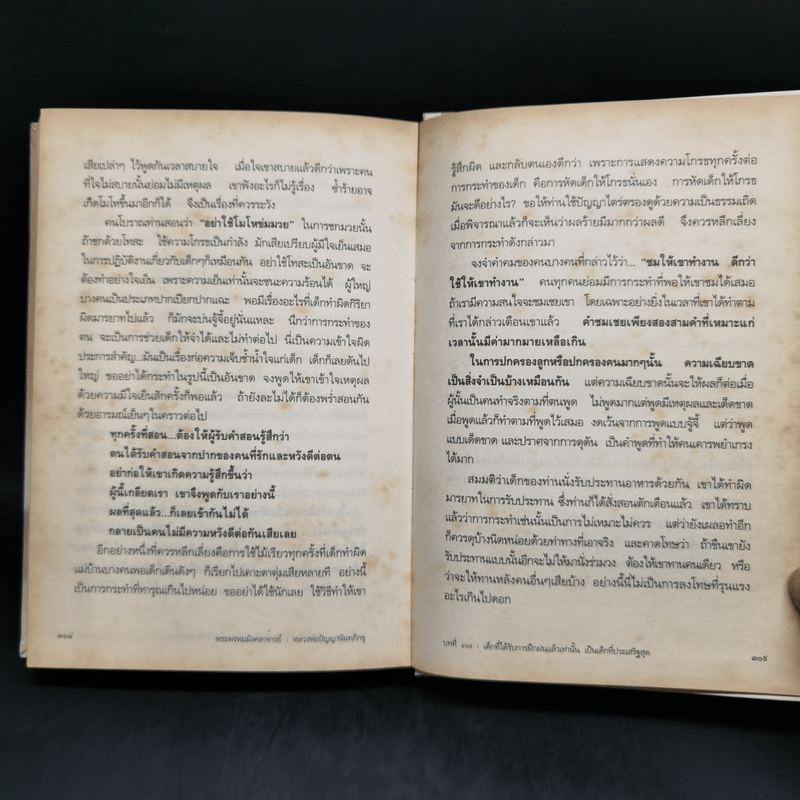 เสียเปล่าๆ ไว้พูดกันเวลาสบายใจ เมื่อใจเขาสบายแล้วดีกว่าเพราะคน
ที่ใจไม่สบายนั้นย่อมไม่มีเหตุผล เขาฟังอะไรก็ไม่รู้เรื่อง ซ้ำร้ายอาจ
เกิดโมโหขึ้นมาอีกก็ได้ จึงเป็นเรื่องที่ควรระวัง
คนโบราณท่านสอนว่า “อย่าใช้โมโหข่มมวย” ในการชกมวยนั้น
ถ้าชกด้วยโทสะ ใช้ความโกรธเป็นกำลัง มักเสียเปรียบผู้มีใจเย็นเสมอ
ในการปฏิบัติงานเกี่ยวกับเด็กๆก็เหมือนกัน อย่าใช้โทสะเป็นอันขาด จะ
ต้องทำอย่างใจเย็น เพราะความเย็นเท่านั้นจะชนะความร้อนได้ ผู้ใหญ่
บางคนเป็นประเภทปากเปียกปากแฉะ พอมีเรื่องอะไรที่เด็กทำผิดกิริยา
ผิดมารยาทไปแล้ว ก็มักจะบ่นรู้จี้อยู่นั่นแหละ นึกว่าการกระทำของ
ตน จะเป็นการช่วยเด็กให้จำได้และไม่ทำต่อไป นี่เป็นความเข้าใจผิด
ประการสำคัญ...มันเป็นเรื่องก่อความเจ็บช้ำน้ำใจแก่เด็ก เด็กก็เลยดันไป
ใหญ่ ขออย่าได้กระทำในรูปนี้เป็นอันขาด จงพูดให้เขาเข้าใจเหตุผล
ด้วยความมีใจเย็นสักครั้งก็พอแล้ว ถ้ายังละไม่ได้ก็ต้องพร่ำสอนกัน
ด้วยอารมณ์เย็นๆในคราวต่อไป
ทุกครั้งที่สอน...ต้องให้ผู้รับคำสอนรู้สึกว่า
ตนได้รับคำสอนจากปากของคนที่รักและหวังดีต่อตน
อย่าก่อให้เขาเกิดความรู้สึกขึ้นว่า
ผู้นี้เกลียดเรา เขาจึงพูดกับเราอย่างนี้
ผลที่สุดแล้ว...ก็เลยเข้ากันไม่ได้
กลายเป็นคนไม่มีความหวังดีต่อกันเสียเลย
อีกอย่างหนึ่งที่ควรหลีกเลี่ยงคือการใช้ไม้เรียวทุกครั้งที่เด็กทำผิด
แม่บ้านบางคนพอเด็กเดินดังๆ ก็เรียกไปเคาะตาตุ่มเสียหลายที อย่างนี้
เป็นการกระทำที่ทารุณเกินไปหน่อย ขออย่าได้ใช้นักเลย ใช้วิธีทำให้เขา
๓๐๘
พระพรหมมังคลาจารย์ : หลวงพ่อปัญญานันทภิกขุ
รู้สึกผิด และกลับตนเองดีกว่า เพราะการแสดงความโกรธทุกครั้งต่อ
การกระทำของเด็ก คือการหัดเด็กให้โกรธนั่นเอง การหัดเด็กให้โกรธ
มันจะดีอย่างไร? ขอให้ท่านใช้ปัญญาไตร่ตรองดูด้วยความเป็นธรรมเถิด
เมื่อพิจารณาแล้วก็จะเห็นว่าผลร้ายมีมากกว่าผลดี จึงควรหลีกเลี่ยง
จากการกระทำดังกล่าวมา
จงจำคำคมของคนบางคนที่กล่าวไว้ว่า... “ชมให้เขาทำงาน ดีกว่า
ใช้ให้เขาทำงาน” คนทุกคนย่อมมีการกระทำที่พอให้เขาชมได้เสมอ
ถ้าเรามีความสนใจจะชมเชยเขา โดยเฉพาะอย่างยิ่งในเวลาที่เขาได้ทำตาม
ที่เราได้กล่าวเตือนเขาแล้ว คำชมเชยเพียงสองสามคำที่เหมาะแก่
เวลานั้นมีค่ามากมายเหลือเกิน
ในการปกครองลูกหรือปกครองคนมากๆนั้น ความเฉียบขาด
เป็นสิ่งจำเป็นบ้างเหมือนกัน แต่ความเฉียบขาดนั้นจะให้ผลก็ต่อเมื่อ
ผู้นั้นเป็นคนทำจริงตามที่ตนพูด ไม่พูดมากแต่พูดมีเหตุผลและเด็ดขาด
เมื่อพูดแล้วก็ทำตามที่พูดไว้เสมอ งดเว้นจากการพูดแบบรู้จี้ แต่ว่าพูด
แบบเด็ดขาด และปราศจากการดุดัน เป็นคำพูดที่ทำให้คนเคารพยำเกรง
ได้มาก
สมมติว่าเด็กของท่านนั่งรับประทานอาหารด้วยกัน เขาได้ทำผิด
มารยาทในการรับประทาน ซึ่งท่านก็ได้สั่งสอนตักเตือนแล้ว เขาได้ทราบ
แล้วว่าการกระทำเช่นนั้นเป็นการไม่เหมาะไม่ควร แต่ว่ายังเผลอทำอีก
ก็ควรดุบ้างนิดหน่อยด้วยท่าทางที่เอาจริง และคาดโทษว่า ถ้าขืนเขายัง
รับประทานแบบนั้นอีกจะไม่ให้มานั่งร่วมวง ต้องให้เขาทานคนเดียว หรือ
ว่าจะให้ทานหลังคนอื่นๆเสียบ้าง อย่างนี้นี่ไม่เป็นการลงโทษที่รุนแรง
อะไรเกินไปดอก
บทที่ ๓๗ : เด็กที่ได้รับการฝึกฝนแล้วเท่านั้น เป็นเด็กที่ประเสริฐสุด
๓๐๙